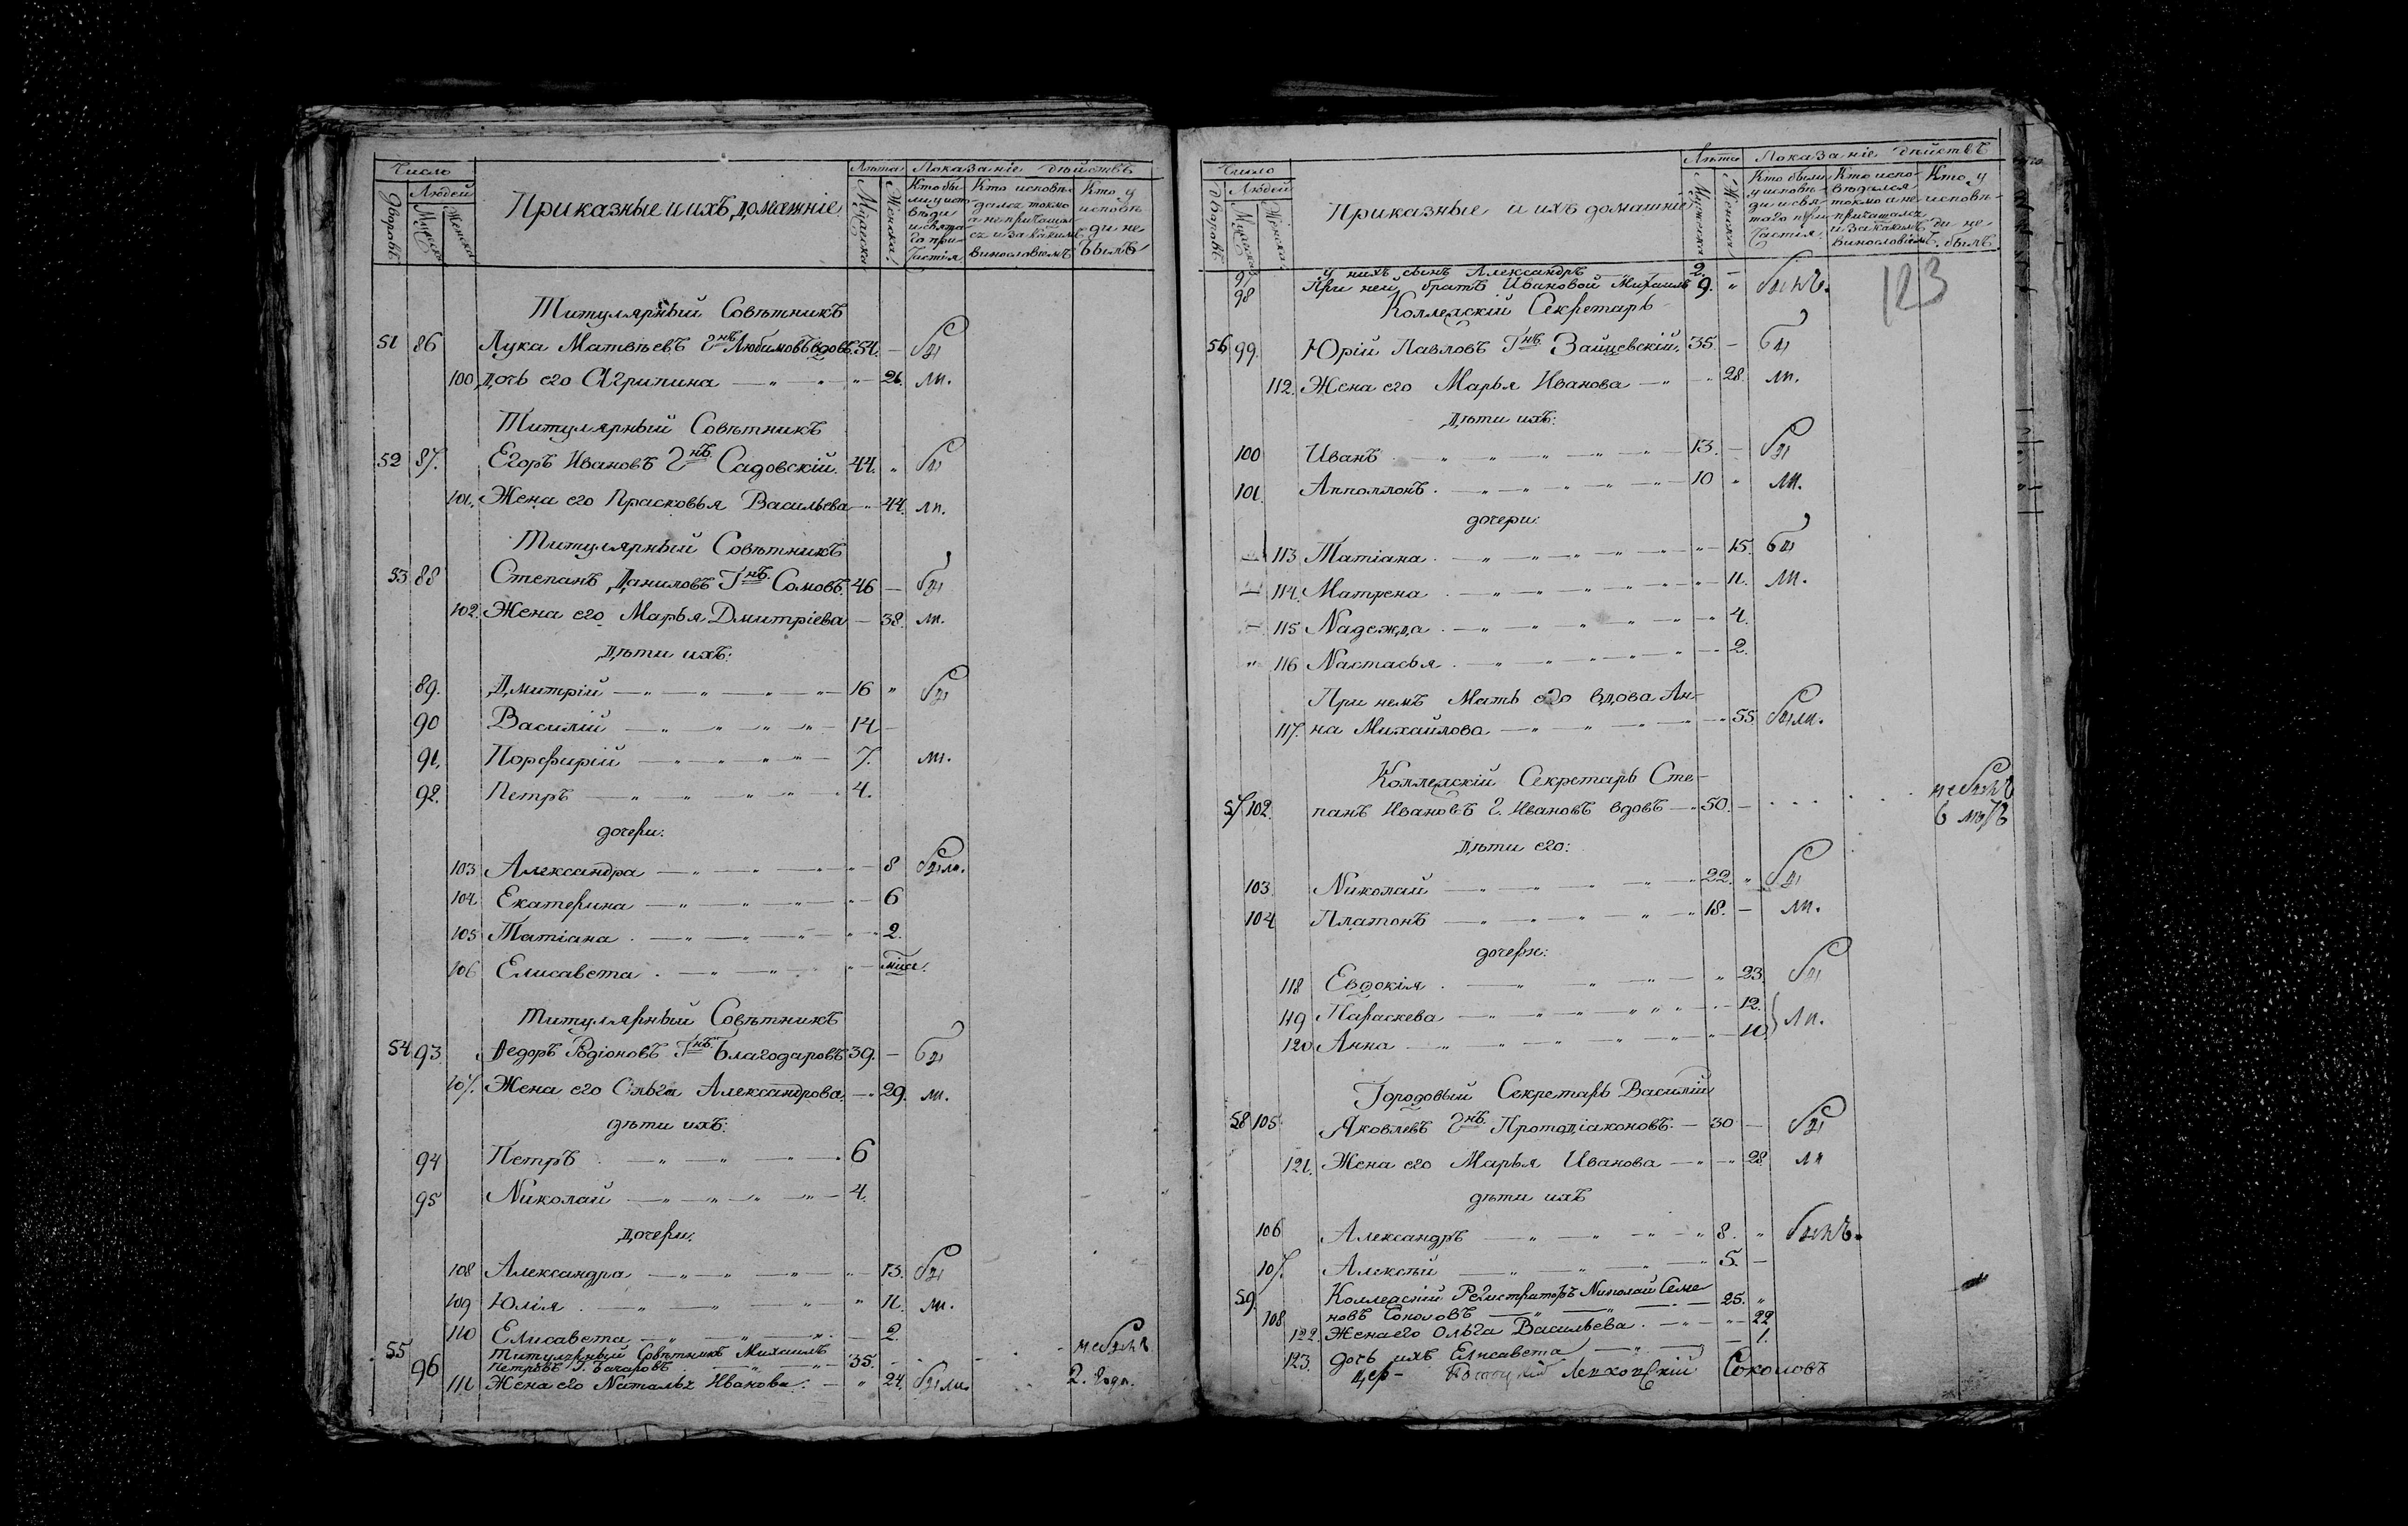 Число
Людей
Дворовъ
Мужеска
Женска
Приказные и ихъ домашніе
Лѣта
Мужеска
Женска
Показаніе дѣйствъ
Кто бы-
ли у испо-
вѣди
и свята-
го при-
частія
Кто исповѣ-
дался токмо
а не причащал-
ся и за какимъ
винословіемъ
Кто у
исповѣ-
ди не
былъ
Титулярный Совѣтникъ
51 86 Лука Матвѣевъ Гнъ Любимовъ вдовъ 54. — бы
100 дочь его Агрипина 26. ли.
Титулярный Совѣтникъ
52 87. Егоръ Ивановъ Гнъ Садовскій. 44. бы
101. Жена его Прасковья Васильева 44. ли.
Титулярный Совѣтникъ
53 88 Степанъ Даниловъ Гнъ Сомовъ. 46 — бы
102. Жена его Марья Дмитріева — 38. ли.
Дѣти ихъ:
89. Дмитрій 16 бы
90 Василій 14 —
91. Порфирій 7. ли.
92. Петръ 4.
дочери:
103 Александра 8 были.
104 Екатерина 6
105 Татіана 2.
106 Елисавета
Титулярный Совѣтникъ
54 93. Федоръ Родіоновъ Гнъ Благодаровъ 39. — бы
107. Жена его Ольга Александрова. 29. ли.
дѣти ихъ:
94 Петръ 6
95 Николай 4.
дочери:
108 Александра 13. бы
109 Юлія 11. ли.
110 Елисавета 2.
55 Титулярный Совѣтникъ Михаилъ
96 Петровъ Г. 35. небылъ
111 Жена его Наталья Иванова. 24. были. 2. года.
Число
Людей
Дворовъ
Мужеска
Женска
Приказные и ихъ домашніе
Лѣта
Мужеска
Женска
Показаніе дѣйствъ
Кто были
у исповѣ-
ди и свя-
таго при-
частія
Кто испо-
вѣдался
токмо а не
причащался
и за какимъ
винословіемъ
Кто у
исповѣ-
ди не
былъ
123
97 у нихъ сынъ Александръ 2. —
98 При ней братъ Ивановой Михаилъ 9. былъ.
Коллежскій Секретарь
56 99. Юрій Павловъ Гнъ Зайцевскій. 35. — бы
112. Жена его Марья Иванова 28. ли.
Дѣти ихъ:
100 Иванъ 13. — бы
101 Апполлонъ. 10 ли.
дочери:
113 Татіана. 15. бы
114. Матрена 11. ли.
115 Надежда. 4.
116 Настасья. 2.
При немъ Мать его вдова Ан-
117. на Михайлова 55. были.
Коллежскій Секретарь Сте-
57 102. панъ Ивановъ Г. Ивановъ вдовъ 50. — небылъ
Дѣти его:
103. Николай 22. бы
104 Платонъ 18. — ли.
дочери:
118 Евдокія. 23. бы
119 Параскева 12.
120 Анна 10. ли.
Городовый Секретарь Василій
58 105. Яковлевъ Гнъ Протодіаконовъ. 30 — бы
121. Жена его Марья Иванова 28. ли
дѣти ихъ
106 Александръ 8. былъ.
107. Алексѣй 5. —
59. Коллежскій Регистраторъ Николай Семе
108 новъ Соколовъ 25.
122. Жена его Ольга Васильева. 22
123. дочь ихъ Елисавета 1.
Соколовъ